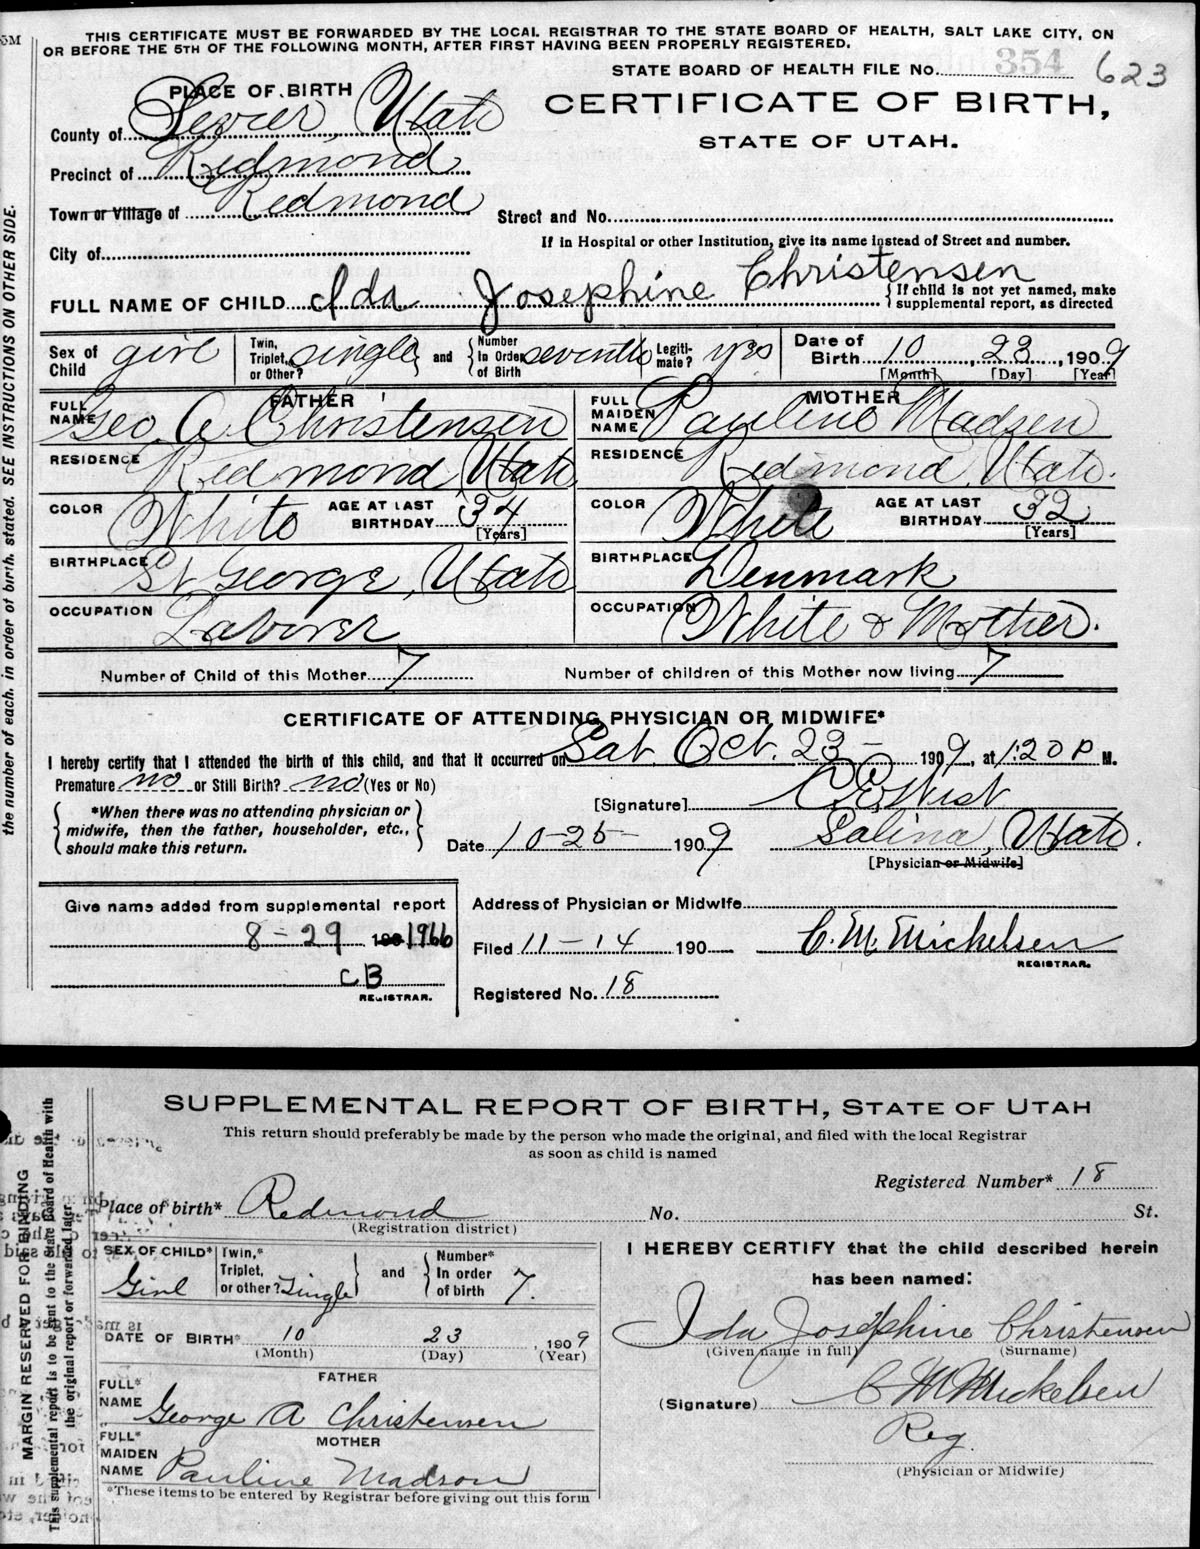 5M
THIS CERTIFICATE MUST BE FORWARDED BY THE LOCAL REGISTRAR TO THE STATE BOARD OF HEALTH, SALT LAKE CITY, ON
OR BEFORE THE 5TH OF THE FOLLOWING MONTH, AFTER FIRST HAVING BEEN PROPERLY REGISTERED.
STATE BOARD OF HEALTH FILE No. 354 623
PLACE OF BIRTH
CERTIFICATE OF BIRTH,
STATE OF UTAH.
County of Sevier Utah
Precinct of Redmond
Town or Village of Redmond
Street and No.
City of
If in Hospital or other Institution, give its name instead of Street and number.
FULL NAME OF CHILD Ida Josephine Christensen
{If child is not yet named, make
supplemental report, as directed
Sex of Child girl
Twin, Triplet, or Other? single and Number In Order of Birth seventh
Legiti-mate? yes
Date of Birth 10, 23, 1909
[Month] [Day] [Year]
FATHER
FULL NAME Geo. A Christensen
MOTHER
FULL MAIDEN NAME Pauline Madsen
RESIDENCE Redmond, Utah
RESIDENCE Redmond, Utah.
COLOR White AGE AT LAST BIRTHDAY 34 [Years]
COLOR White AGE AT LAST BIRTHDAY 32 [Years]
BIRTHPLACE St George, Utah
BIRTHPLACE Denmark
OCCUPATION Laborer
OCCUPATION White & Mother.
Number of Child of this Mother 7
Number of children of this Mother now living 7
CERTIFICATE OF ATTENDING PHYSICIAN OR MIDWIFE*
I hereby certify that I attended the birth of this child, and that it occurred on Sat. Oct. 23- 1909, at 1:20 P M.
Premature no or Still Birth? no (Yes or No)
*When there was no attending physician or
midwife, then the father, householder, etc.,
should make this return.
[Signature]
Date 10-25- 1909
Salina, Utah.
[Physician or Midwife]
Give name added from supplemental report
8-29 190 1966
CB
REGISTRAR.
Address of Physician or Midwife
Filed 11-14 190
C. M. Mickelsen
REGISTRAR.
Registered No. 18
the number of each, in order of birth, stated. SEE INSTRUCTIONS ON OTHER SIDE.
SUPPLEMENTAL REPORT OF BIRTH, STATE OF UTAH
This return should preferably be made by the person who made the original, and filed with the local Registrar
as soon as child is named
Registered Number* 18
Place of birth* Redmond No. St.
(Registration district)
SEX OF CHILD* Girl
Twin,* Triplet, or other? Single and Number* In order of birth 7.
DATE OF BIRTH* 10 23, 1909
(Month) (Day) (Year)
FATHER
FULL* NAME George A Christensen
MOTHER
FULL* MAIDEN NAME Pauline Madson
*These items to be entered by Registrar before giving out this form
I HEREBY CERTIFY that the child described herein
has been named:
Ida Josephine Christensen
(Given name in full) (Surname)
(Signature) C M Mickelsen
Reg.
(Physician or Midwife)
MARGIN RESERVED FOR BINDING
This supplemental report is to be sent to the State Board of Health with
the original report or forwarded later.